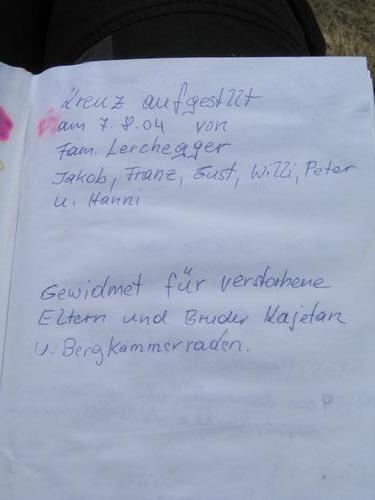 Kreuz aufgestllt
am 7.8.04 von
Fam. Lerchegger
Jakob, Franz, Gust, Willi, Peter
u. Hanni
Gewidmet für verstorbene
Eltern und Bruder Kajetan
u. Bergkammerraden.